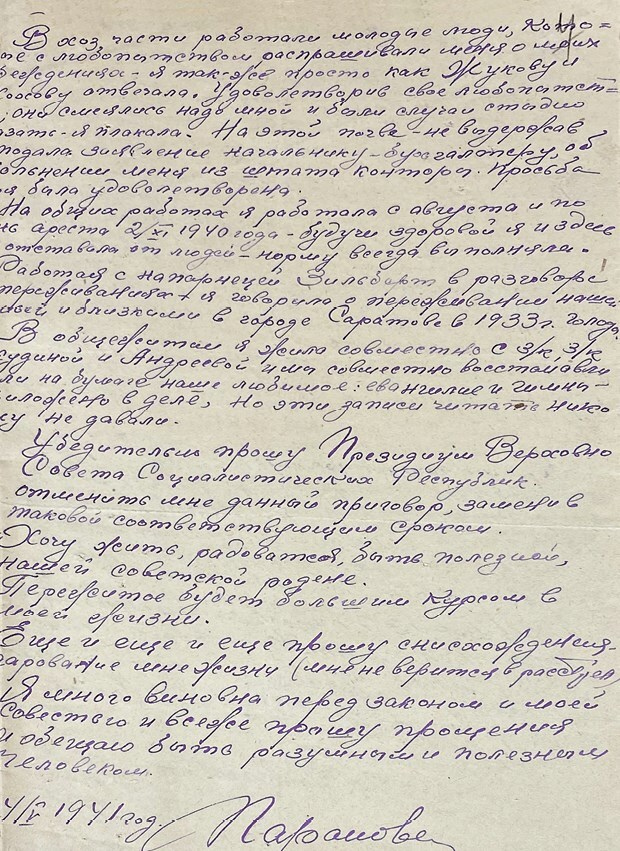 В хоз. части работали молодые люди, кото=
ые с любопытством распрашивали меня о моих
беждениях - я так-же просто как Жукову и
отвечала. Удовлетворив свое любопытст=
, они смеялись надо мной и были случаи стыдно
азать - я плакала. На этой почве - не выдержав
подала заявление начальнику - бухгалтеру, об
вольнении меня из штата конторы. Просьба
я была удовлетворена.
На общих работах я работала с августа и по
нь ареста 2/XI 1940 года - будучи здоровой я и здесь
отставала от людей - норму всегда выполняла.
Работая с напарницей Зильберт в разговоре
переживаниях - я говорила о переживании наше
мьи и близкими в городе Саратове в 1933 г. голода.
В общежитии я жила совместно с З/к, З/к
судиной и Андреевой и мы совместно восстанавли
ли на бумаге наше любимое: евангилие и гимны -
иложено в деле, но эти записи читать нико
му не давали.
Убедительно прошу Президиум Верховно
Совета Социалистических Республик.
отменить мне данный приговор, заменив
таковой соответствующим сроком.
Хочу жить, радоватся, быть полезной,
нашей советской родене.
Пережитое будет большим курсом в
моей жизни.
Еще и еще и еще прошу снисхождения -
дарование мне жизни (мне не верится в расстрел)
Я много виновна перед законом и моей
Совестью и всеже прошу прощения
и обещаю быть разумным и полезным
человеком.
4/V 1941 год.